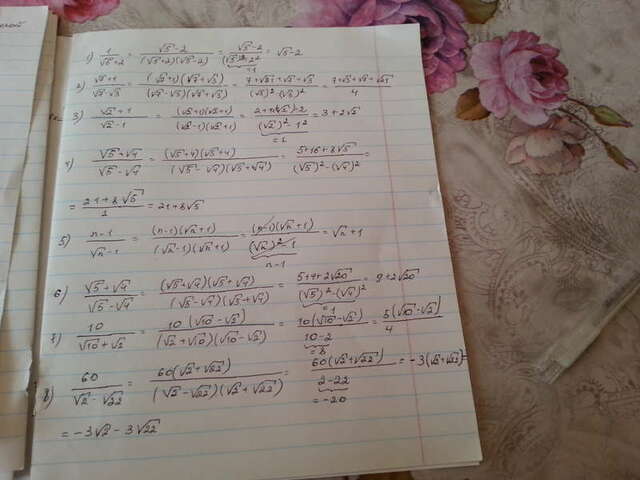 1) 1/(√5+2) = (√5-2)/((√5+2)(√5-2)) = (√5-2)/((√5)²-2²) = √5-2
=1
2) (√7+1)/(√7-√3) = ((√7+1)(√7+√3))/((√7-√3)(√7+√3)) = (7+√21+√7+√3)/((√7)²-(√3)²) = (7+√7+√3+√21)/4
3) (√2+1)/(√2-1) = ((√2+1)(√2+1))/((√2-1)(√2+1)) = /((√2)²-1²) = 3+2√2
=1
4) (√5+√4)/(√5-√4) = ((√5+4)(√5+4))/((√5-√4)(√5+√4)) = (5+16+8√5)/((√5)²-(√4)²) =
= (21+8√5)/1 = 21+8√5
5) (n-1)/(√n-1) = ((n-1)(√n+1))/((√n-1)(√n+1)) = ((n-1)(√n+1))/((√n)²-1) = √n+1
n-1
6) (√5+√4)/(√5-√4) = ((√5+√4)(√5+√4))/((√5-√4)(√5+√4)) = (5+4+2√20)/((√5)²-(√4)²) = 9+2√20
=1
7) 10/(√10+√2) = (10(√10-√2))/((√2+√10)(√10-√2)) = (10(√10-√2))/(10-2) = (5(√10-√2))/4
=8
8) 60/(√2-√22) = (60(√2+√22))/((√2-√22)(√2+√22)) = (60(√2+√22))/(2-22) = -3(√2+√22)=
=-20
= -3√2 - 3√22